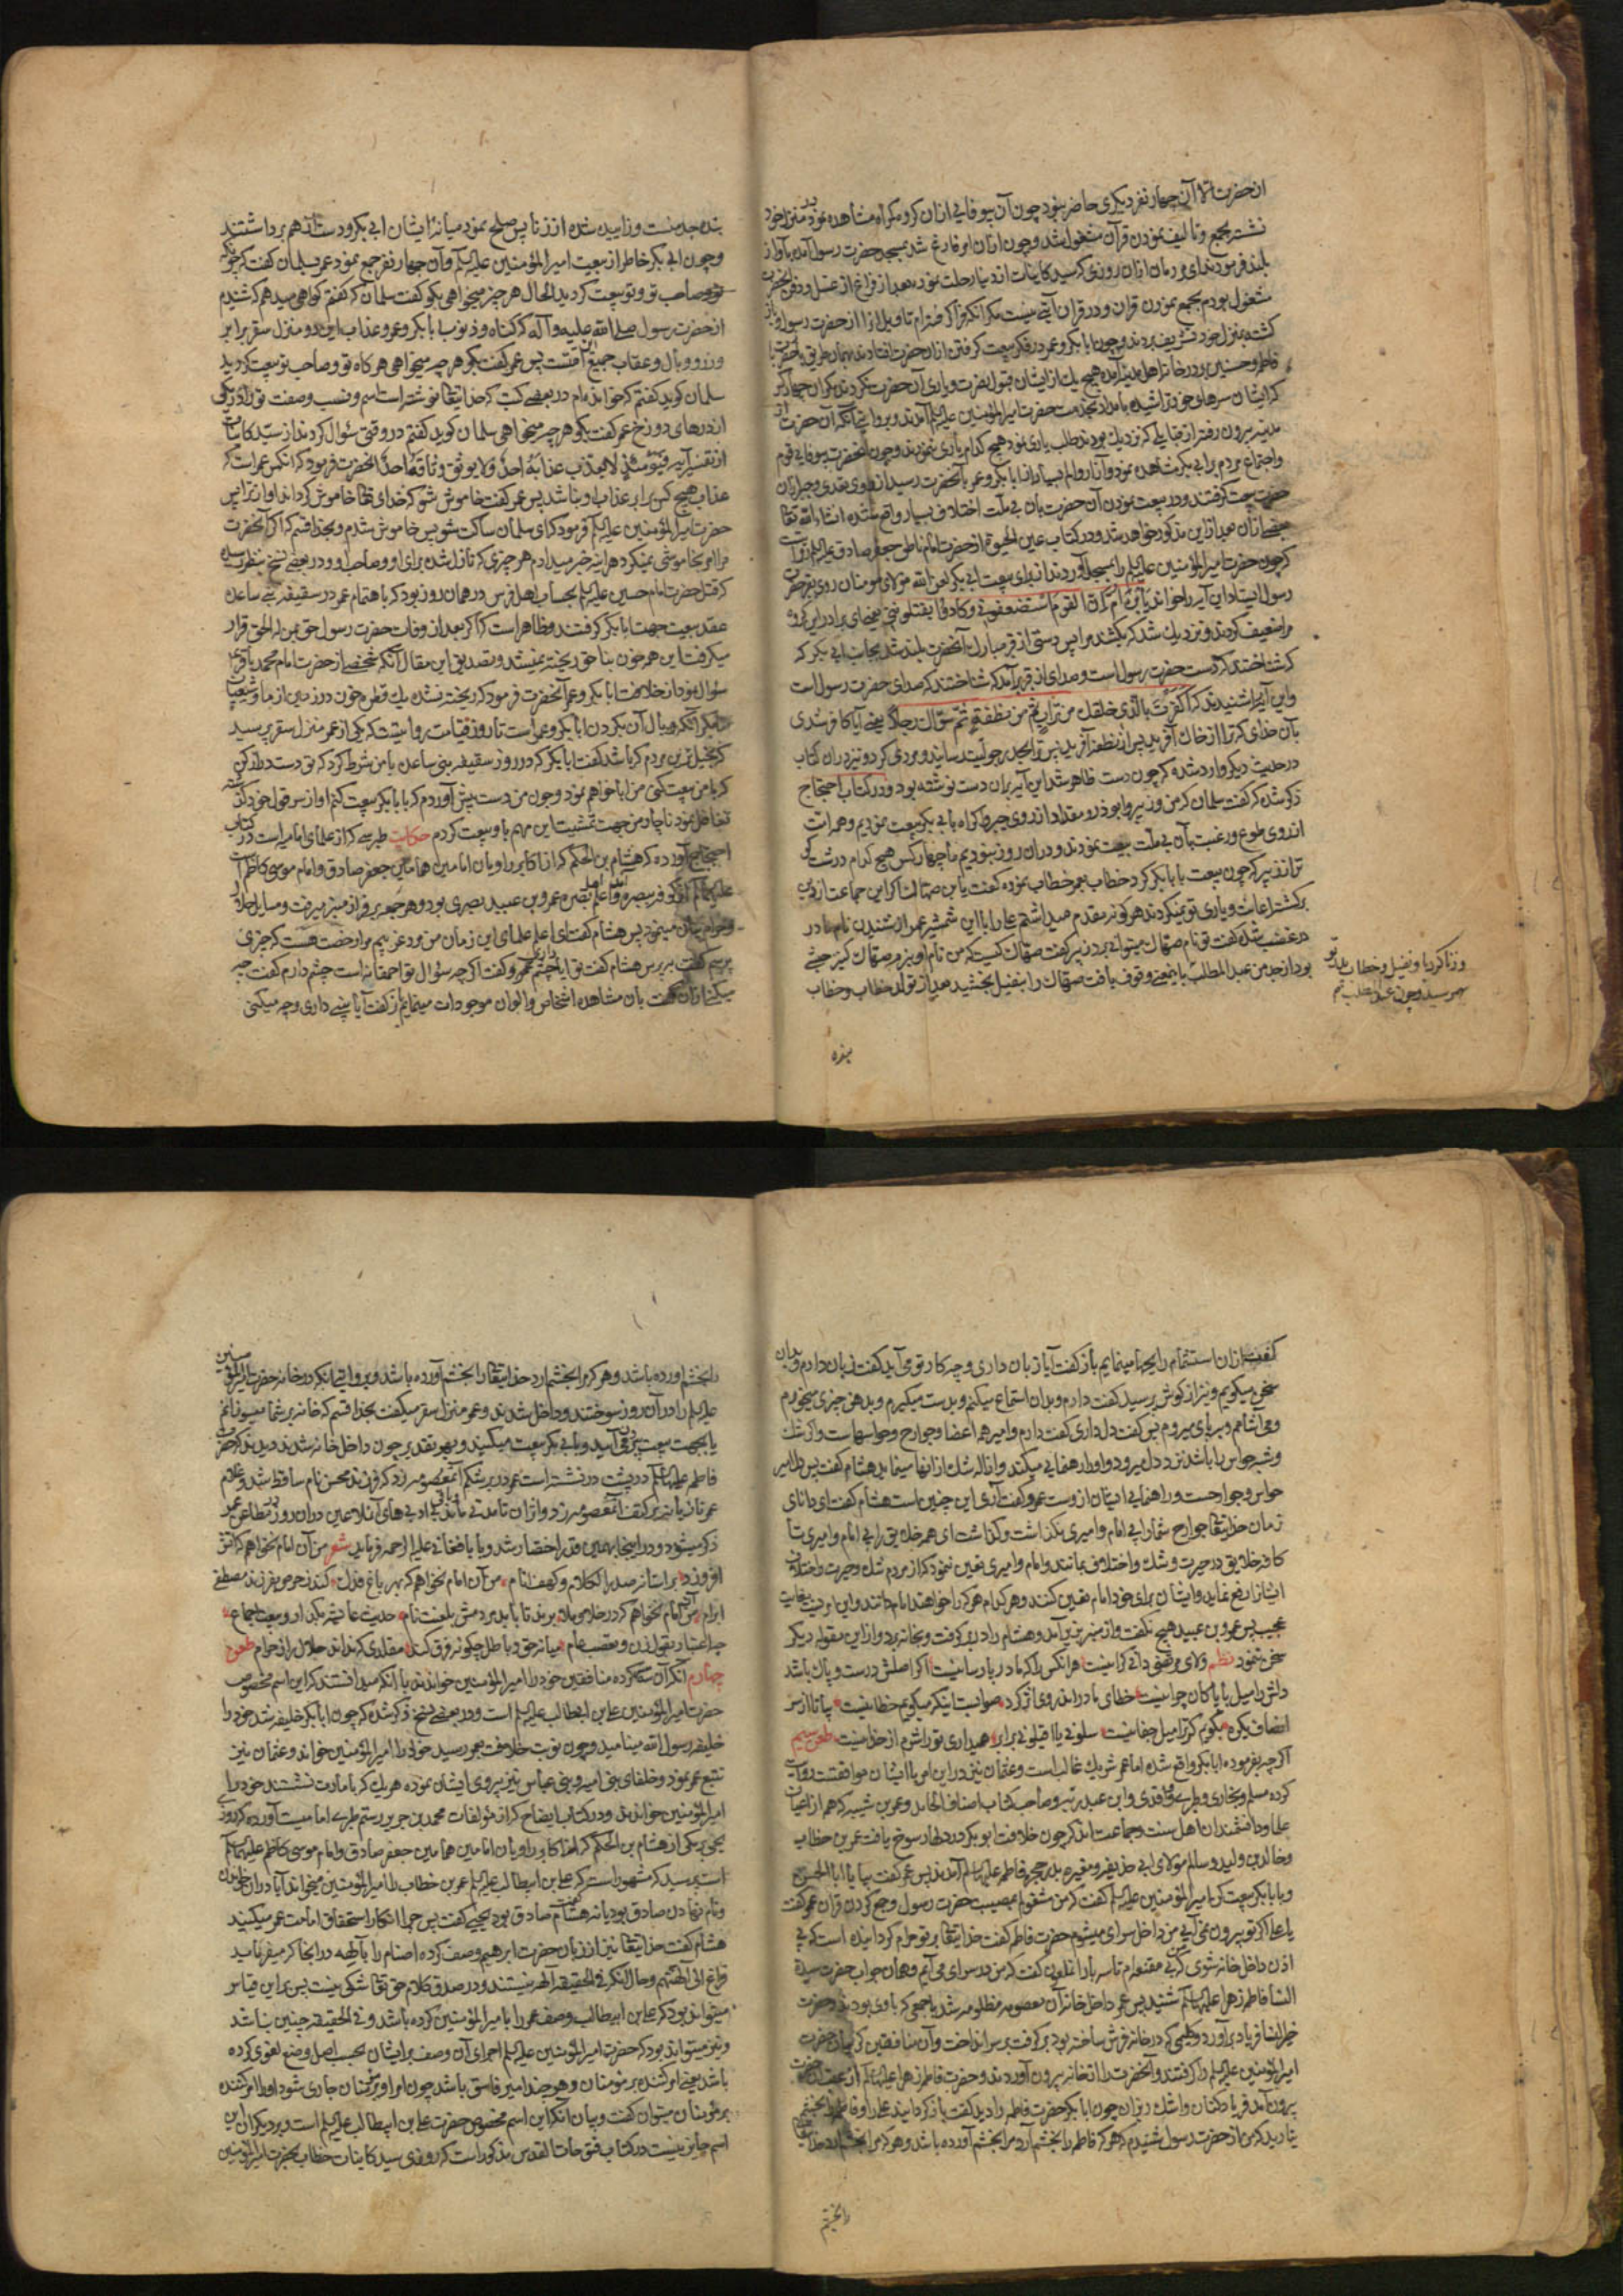 ان حضرت الا آن چهار نفر دیکری حاضر نبود چون آن بیوفایی ازان کروه مکراه مشاهده نمود در منزل خود
نشسته بجمع و تالیف نمودن قرآن مشغول شد و چون ازان امر فارغ شد بمسجد حضرت رسول آمده باواز
بلند فرمود ندای مردمان ازان روزی که سید کاینات از دنیا رحلت نموده بعد از فراغ از غسل و دفن انحضرت
مشغول بودم بجمع نمودن قران و در قران آیتی نیست مکر انکه تاویل انرا از حضرت رسول
کشته بمنزل خود تشریف بردند و چون ابابکر و عمر در فکر بیعت کرفتن ازان حضرت افتادند بهمان طریق انحضرت با
فاطمه و حسنین بدر خانه اهل مدینه آمده هیچ یک از ایشان قبول نصرت و یاری آن حضرت نکردند مکران چهار کس
که ایشان سرهای خود تراشیده بامداد بخدمت حضرت امیرالمؤمنین علیه السلم آمدند و بروایتی آنکه آن حضرت از
مدینه بیرون رفته از قبایلی که نزدیک بودند طلب یاری نمود هیچ کدام یاری ننمودند و چون انحضرت بیوفایی قوم
و اجتماع مردم بر ابی بکر مشاهده نمود و آزار و الم بسیار از ابابکر و عمر بآنحضرت رسید از روی تعدی و جبر ازان
حضرت بیعت کرفتند و در بیعت نمودن آن حضرت بان بی ملت اختلاف بسیار واقع شده انشاء الله تعا
بعضی ازان بعد ازاین مذکور خواهد شد و در کتاب عین الحیوة از حضرت امام ناطق جعفر صادق علیه السلم روایت
که چون حضرت امیرالمؤمنین علیه السلم را بمسجد آوردند از برای بیعت ابی بکر لعن الله مولای مومنان روی بقبر حضرت
رسول ایستاد این آیه را خواند یا بن ام ان القوم استضعفونی و کادوا یقتلوننی یعنی ای برادر این کروه
مرا ضعیف کردند و نزدیک شد که بکشند مرا پس دستی از قبر مبارک آنحضرت بلند شد بجانب ابی بکر که
که شناختند که دست حضرت رسول است و صدای از قبر برآمد که شناختند که صدای حضرت رسول است
و این آیه را شنیدند که اکفرت بالذی خلقک من تراب ثم من نطفة ثم سوّاک رجلا یعنی آیا کافر شدی
بآن خدای که ترا از خاک آفرید پس از نطفه آفرید پس ترا بحد رجولیت رسانید و مردی کرد و نیز دران کتاب
در حدیث دیکر وارد شده که چون دست ظاهر شد این آیه بران دست نوشته بود و در کتاب احتجاج
ذکر شده که کفت سلمان که من و زبیر و ابوذر و مقداد از روی جبر و اکراه بابی بکر بیعت نمودیم و همه امت
از روی طوع و رغبت بآن بی ملت بیعت نمودند و دران روز نبودیم ما چهار کس هیچ کدام درشت کو
تر از زبیر که چون بیعت با بابکر کرد خطاب بعمر خطاب نموده کفت یا بن صهاک اکر این جماعت از دین
برکشته اعانت و یاری تو نمیکردند هرکونه مقدم میداشتم علی را با این شمشیر عمر از شنیدن نام مادر
در غضب شده کفت تو نام صهاک میتوانی برد زبیر کفت صهاک کیست که من نام او نبرم صهاک کنیز حبشی
بود از جد من عبدالمطلب باینمعنی وقوف یافت صهاک را بنفیل بخشید بعد از تولد خطاب و خطاب
و زنا کرد با و نفیل و خطاب
بهم رسید و چون عبدالمطلب هم
بنده
بنده جد منست و زاییده شده از زنا پس صلح نمود میانه ایشان ابی بکر و دست از هم برداشتند
و چون ابی بکر خاطر از بیعت امیرالمؤمنین علیه السلم و آن چهار نفر جمع نمود عمر بسلمان کفت که چونکه
تو و صاحب تو بیعت کردید الحال هر چیز میخواهی بکو کفت سلمان که کفتم کواهی میدهم که شنیدم
از حضرت رسول صلی الله علیه و آله که کناه و ذنوب ابابکر و عمر و عذاب این دو منزل سقر برابر
وزر و وبال و عقاب جمیع این امتست پس عمر کفت بکو هر چه میخواهی هر کاه تو و صاحب تو بیعت کردید
سلمان کوید کفتم که خوانده ام در بعضی کتب که خدایتعا نوشته است اسم و نسب و صفت تو را در یکی
از درهای دوزخ عمر کفت بکو هر چه میخواهی سلمان کوید کفتم در وقتی سئوال کردند از سید کاینات
از تفسیر آیه فیومئذ لا یعذب عذابه احد ولا یوثق وثاقه احد انحضرت فرمود که انکس عمر است که
عذاب هیچ کس برابر عذاب او نباشد پس عمر کفت خاموش شو که خدای تعا خاموش کرداند او ترا پس
حضرت امیرالمؤمنین علیه السلم فرمود که ای سلمان ساکت شو پس خاموش شدم و بخدا قسم که اکر آنحضرت
مرا امر بخاموشی نمیکرد هر اینه خبر میدادم هر چیزی که نازل شده برای او و صاحب او و در بعضی نسخ بنظر رسیده
که قتل حضرت امام حسین علیه السلم بحساب اهل فرس در همان روز بود که باهتمام عمر در سقیفه بنی ساعده
عقد بیعت جهت ابابکر کرفتند و ظاهر است که اکر بعد از وفات حضرت رسول حق بمن له الحق قرار
میکرفت این همه خون بناحق ریخته نمیشد و تصدیق این مقال آنکه شخصی از حضرت امام محمد باقر
سؤال نمود از خلافت ابابکر و عمر آنحضرت فرمود که ریخته نشده یک قطره خون در زمین از ما و شیعیان
ما مکر آنکه وبال آن بکردن ابابکر و عمر است تا روز قیامت روایتست که یکی از عمر منزل سقر پرسید
که بخیل ترین مردم که باشد کفت ابابکر که در روز سقیفه بنی ساعده با من شرط کرد که تو دست دراز کن
که با من بیعت کنی من ابا خواهم نمود و چون من دست پیش آوردم که با بابکر بیعت کنم او از سر قول خود کذشته
تغافل نمود ناچار من جهت تمشیت این مهم باو بیعت کردم حکایت طبرسی که از علمای امامیه است در کتاب
احتجاج آورده که هشام بن الحکم که از اکابر راویان امامین همامین جعفر صادق و امام موسی کاظم
علیهما السلم از کوفه ببصره آمد و اعلم اهل بصره عمرو بن عبید بصری بود و هر جمعه بر فراز منبر میرفت و مسایل حلال
و حرام بیان مینمود پس هشام کفت ای اعلم علمای این زمان من مرد غریبم مرا رخصت هست که چیزی
پرسم کفت بپرس هشام کفت تو آیا چشم داری عمرو کفت اکر چه سؤال تو احمقانه است چشم دارم کفت چه
میکنی ازان کفت بان مشاهده اشخاص و الوان موجودات مینمایم باز کفت آیا بینی داری و چه میکنی
کفت ازان استشمام رایحها مینمایم باز کفت آیا زبان داری و چه کار تو می آید کفت زبان دارم و بدان
سخن میکویم و نیز از کوش پرسید کفت دارم و بدان استماع میکنم و بدست میکیرم و بدهن چیزی میخورم
و می آشامم و بپای میروم پس کفت دل داری کفت دارم و امیر همه اعضا و جوارح و حواسهاست و اکر شک
و شبه حواس را باشد نزد دل میرود و او را رهنمایی میکند و ازاله شک از انها مینماید هشام کفت پس دل امیر
حواس و جوارحست و راهنمایی ایشان ازوست عمرو کفت آری این چنین است هشام کفت ای دانای
زمان خدایتعا جوارح شما را بی امام و امیری نکذاشت و کذاشت ای همه خلایق را بی امام و امیری تا
کافه خلایق در حیرت و شک و اختلاف بمانند و امام و امیری تعیین ننمود که از مردم شک و حیرت و اختلاف
ایشان رفع نماید و ایشان برای خود امام تعیین کنند و هر کدام هر که را خواهند امام دانند و این امریست بغایت
عجیب پس عمرو بن عبید هیچ نکفت و از منبر بزیر آمد و هشام را در بر کرفت و بخانه برد و از این مقوله دیکر
سخن ننمود نظم ولای مرتضی دانی کرا نیست هر انکس را که مادر پارسا نیست اکر اصلش درست و پاک باشد
دلش را میل با پاکان چرا نیست خطای مادر اندر وی اثر کرد صوابست اینکه میکویم خطا نیست بیا تا از سر
انصاف یکره بکویم کرترا میل جفا نیست سلونی یا اقیلونی برابر همیداری تو را شرم از خدا نیست طعن سیم
اکر چه بفرموده ابابکر واقع شده اما عمر شریک غالب است و عثمان نیز در این امر با ایشان موافقتست روایت
کرده مسلم و بخاری و طبری و واقدی و ابن عبد ربه و صاحب کتاب اصناف الحامد و عمر بن شیبه که هم از اعیان
علما و دانشمندان اهل سنت و جماعت اند که چون خلافت ابو بکر در دلها رسوخ یافت عمر بن خطاب
و خالد بن ولید و سالم مولای ابی حذیفه و مغیره بدر حجره فاطمه علیها السلم آمدند پس عمر کفت بیا یا ابا الحسن
و با بابکر بیعت کن امیرالمؤمنین علیه السلم کفت که من مشغولم بمصیبت حضرت رسول و جمع کردن قران عمر کفت
یا علی اکر تو بیرون نمی آیی من داخل سرای میشوم حضرت فاطمه کفت خدایتعا بر تو حرام کردانیده است که بی
اذن داخل خانه شوی که بی مقنعه ام تا سه بار آن ملعون کفت که من در سرای می آیم و همان جواب حضرت سیدة
النسا فاطمه زهرا علیها السلم شنید پس عمر داخل خانه آن معصومه مظلومه شد با جمعی که باوی بودند و حضرت
خیرالنسا فریاد برآورد و کلیمی که در خانه فرش ساخته بود بر کرفت بر سر انداخت و آن منافقین کریبان حضرت
امیرالمؤمنین علیه السلم را کرفتند و آنحضرت را از خانه بیرون آوردند و حضرت فاطمه زهرا علیها السلم از عقب حضرت
بیرون آمد فریاد کنان و اشک ریزان چون ابابکر حضرت فاطمه را دید کفت باز کردانید علی را و فاطمه را بخشم
نیارید که من از حضرت رسول شنیدم که هر که فاطمه را بخشم آرد مرا بخشم آورده باشد و هر که مرا بخشم آرد خدایتعا
را بخشم
را بخشم اورده باشد و هر که مرا بخشم ارد خدایتعا را بخشم آورده باشد و بروایتی انکه در خانه حضرت امیرالمؤمنین
علیه السلم را در آن روز سوختند و داخل شدند و عمر منزل سقر میکفت بخدا قسم که خانه بر شما میسوزانم
یا بجهت بیعت بیرون می آیید و با ابی بکر بیعت میکنید و بهر تقدیر چون داخل خانه شدند دیدند که حضرت
فاطمه علیها السلم در پشت در نشسته است عمر در بر شکم آنمعصومه زد که فرزند محسن نام ساقط شد و غلام
عمر تازیانه بر کتف آنمعصومه زد و اثر ان تا مدتی ماند باقی ادبی های آن لاعین دران روز بمطاعن عمر
ذکر میشود و در اینجا بهمین قدر اختصار شد و بابا فغانی علیه الرحمه فرماید شعر من آن امام نخواهم که اتش
افروزد بر استانه صدر الکلام و کهف انام من آن امام نخواهم که بهر باغ فدک کند ز حرص بفرزند مصطفی
ابرام من آن امام نخواهم که در خلا و ملا برند تا بابد بر دمش بلعنت نام حدیث عایشه بکذار و بیعت اجماع
چه اعتبار بقول زن و تعصب عام میانه حق و باطل چکونه فرق کند مقلدی که نداند حلال را ز حرام طعن
چهارم آنکه آن سکرده منافقین خود را امیرالمؤمنین خواندند با انکه میدانستند که این اسم مخصوص
حضرت امیرالمؤمنین علی بن ابیطالب علیه السلم است و در بعضی نسخ ذکر شده که چون ابابکر خلیفه شد خود را
خلیفه رسول الله مینامید و چون نوبت خلافت بعمر رسید خود را امیرالمؤمنین خواند و عثمان نیز
تتبع عمر نمود و خلفای بنی امیه و بنی عباس نیز پیروی ایشان نموده هر یک که بامارت نشستند خود را
امیرالمؤمنین خواندند و در کتاب ایضاح که از مؤلفات محمد بن جریر رستم طبری امامیست آورده که روزی
یحیی برمکی از هشام بن الحکم که از اکابر راویان امامین همامین جعفر صادق و امام موسی کاظم علیهما السلم
است پرسید که مشهور است که علی بن ابیطالب علیه السلم عمر بن خطاب را امیرالمؤمنین میخواند آیا دران خواندن
و نام نهادن صادق بود یا نه هشام کفت صادق بود یحیی کفت پس چرا انکار استحقاق امامت عمر میکنید
هشام کفت خدایتعا نیز از زبان حضرت ابرهیم وصف کرده اصنام را بآلهه در انجا که میفرماید
فراغ الی آلهتهم و حال انکه فی الحقیقه آلهه نیستند و در صدق کلام حق تعا شکی نیست پس بر این قیاس
میتواند بود که علی بن ابیطالب وصف عمر را با میرالمؤمنین کرده باشد و فی الحقیقه چنین نباشد
و نیز میتواند بود که حضرت امیرالمؤمنین علیه السلم اجرای آن وصف بر ایشان بحسب اصل وضع لغوی کرده
باشد یعنی امر کننده بر مؤمنان و هر چند امیر فاسق باشد چون امر او بر مؤمنان جاری شود او را امر کننده
بر مؤمنان میتوان کفت و بیان آنکه این اسم مخصوص حضرت علی بن ابیطالب علیه السلم است و بر دیکران این
اسم جایز نیست در کتاب فتوحات القدس مذکور است که روزی سید کاینات خطاب بحضرت امیرالمؤمنین